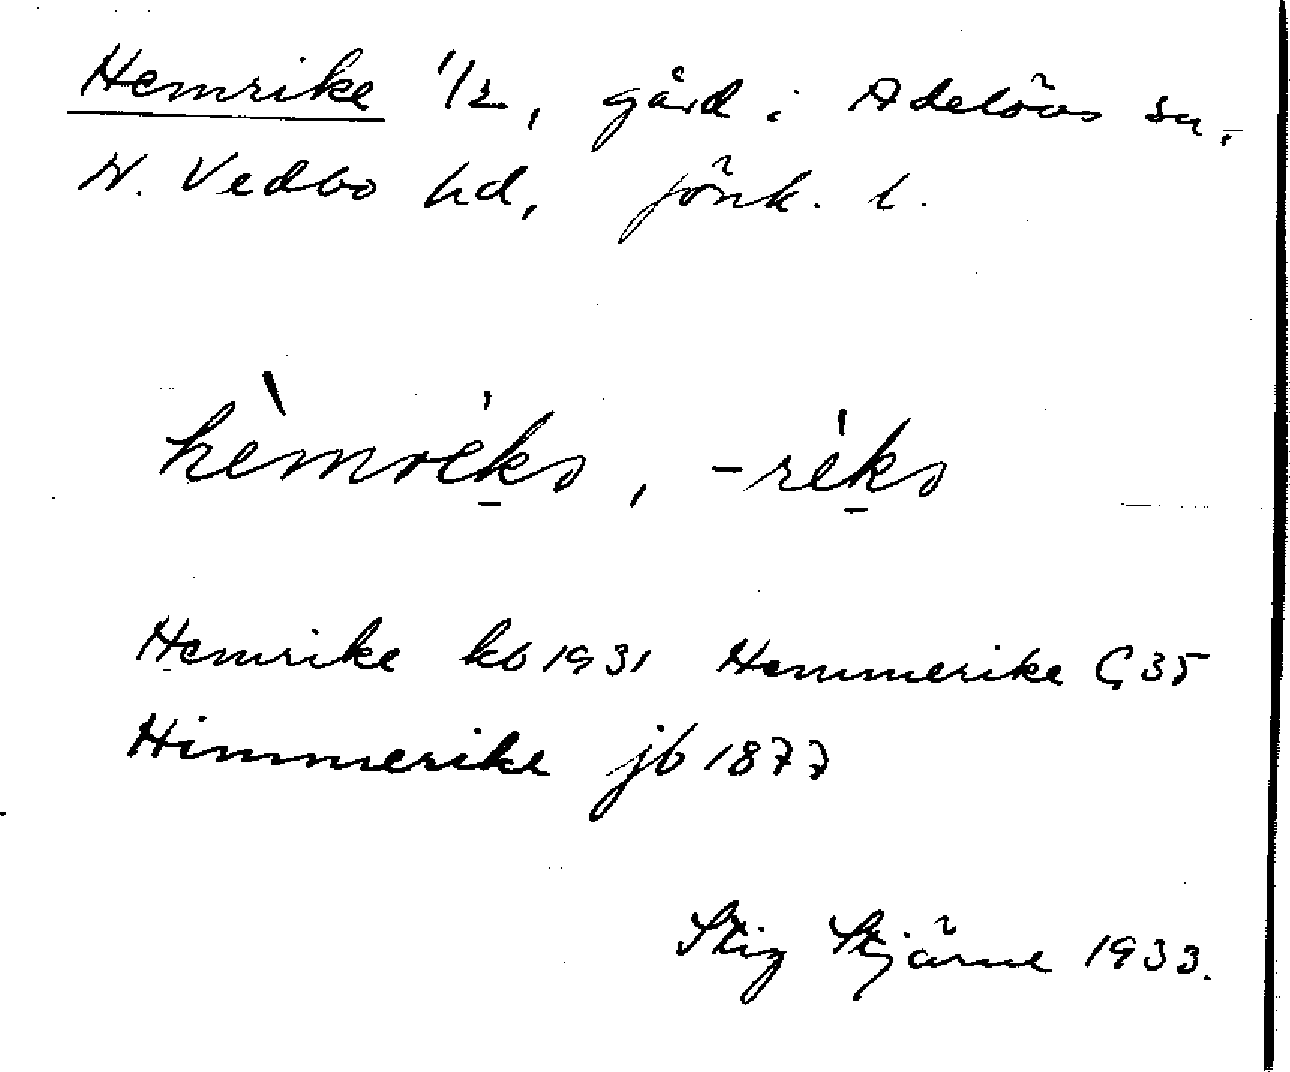 Hemrike 1/2, gård i Adelövs sn.
N. Vedbo hd, Jönk. l.
hèmréks, -réks
Hemrike kb 1931 Hemmerike G 35
Himmerike jb 1877
Stig Stjärne 1933.